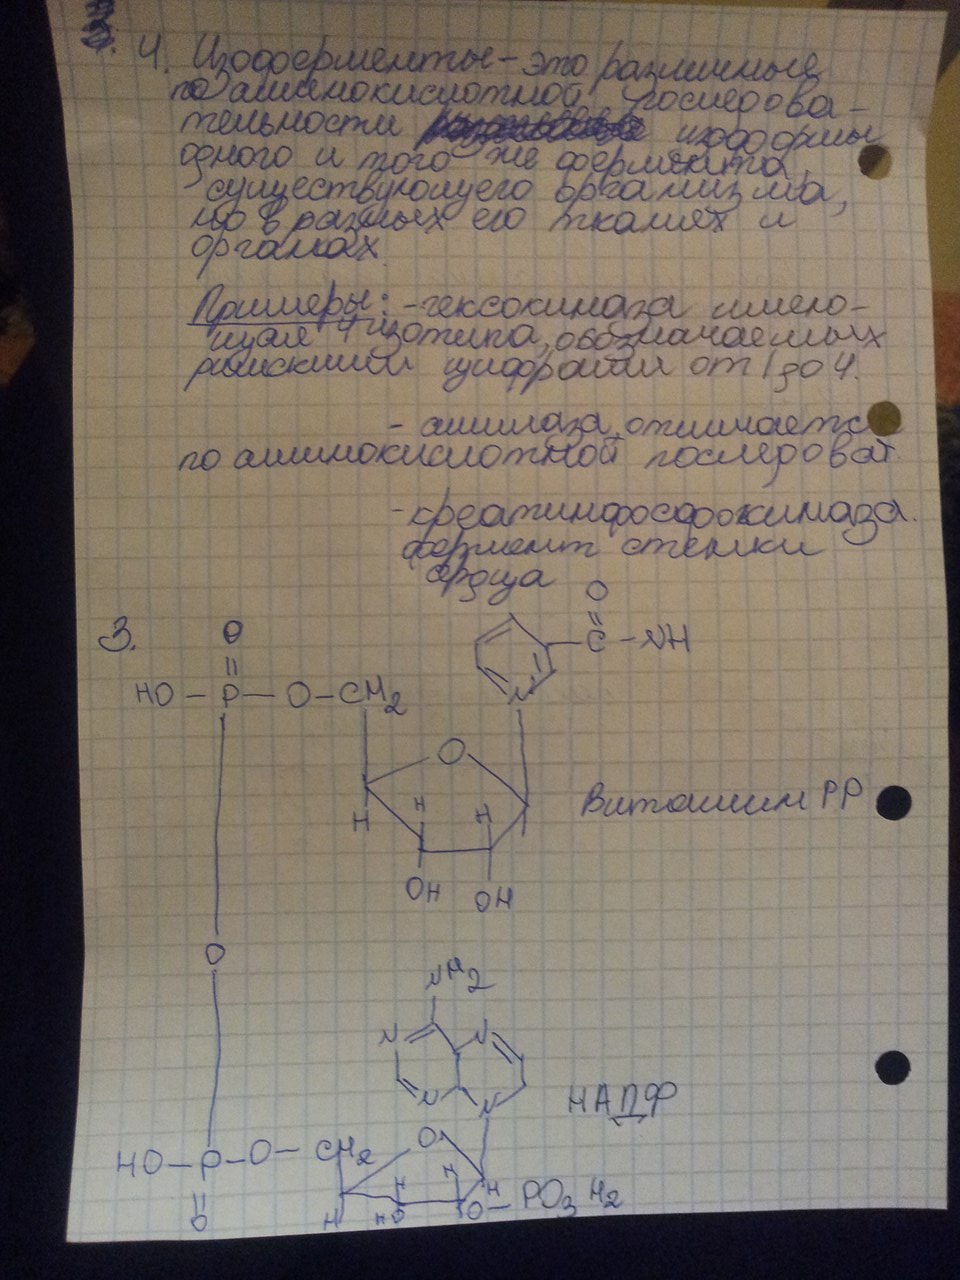 4. Изоферменты - это различные
по аминокислотной последова-
тельности изоформы
одного и того же фермента,
существующего организма,
но в разных его тканях и
органах.
Примеры: - гексокиназа имею-
щая 4 изотипа, обозначаемых
римскими цифрами от 1 до 4.
- амилаза, отличаетс
по аминокислотной последоват.
- креатинфосфокиназа.
фермент стенки
сердца
3.
O
O
C - NH
HO - P - O - CH2
N
O
H
H
H
Витамин РР
OH
OH
O
NH2
N
N
N
N
НАДФ
HO - P - O - CH2
O
H
H
H
H
HO
O - PO3H2
O